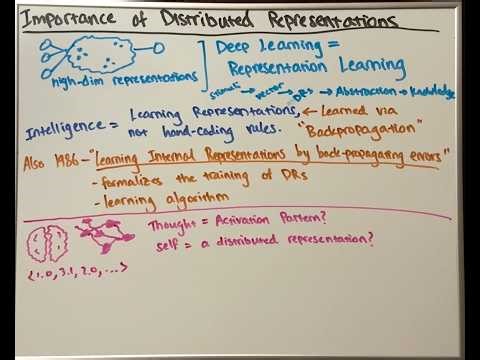 Importance of Distributed Representations
high-dim representations
Deep Learning =
Representation Learning
stimuli → vector → DRs → Abstraction → Knowledge
Intelligence = Learning Representations, ← Learned via
not hand-coding rules. "Backpropagation"
Also 1986 - "Learning Internal Representations by back-propagating errors"
- formalizes the training of DRs
- learning algorithm
Thought = Activation Pattern?
self = a distributed representation?
<1.0, 3.1, 2.0, ...>